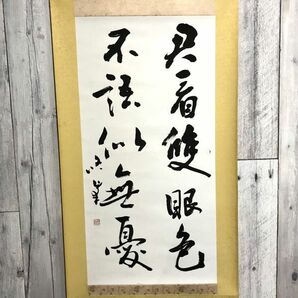 君看雙眼色
不語似無憂